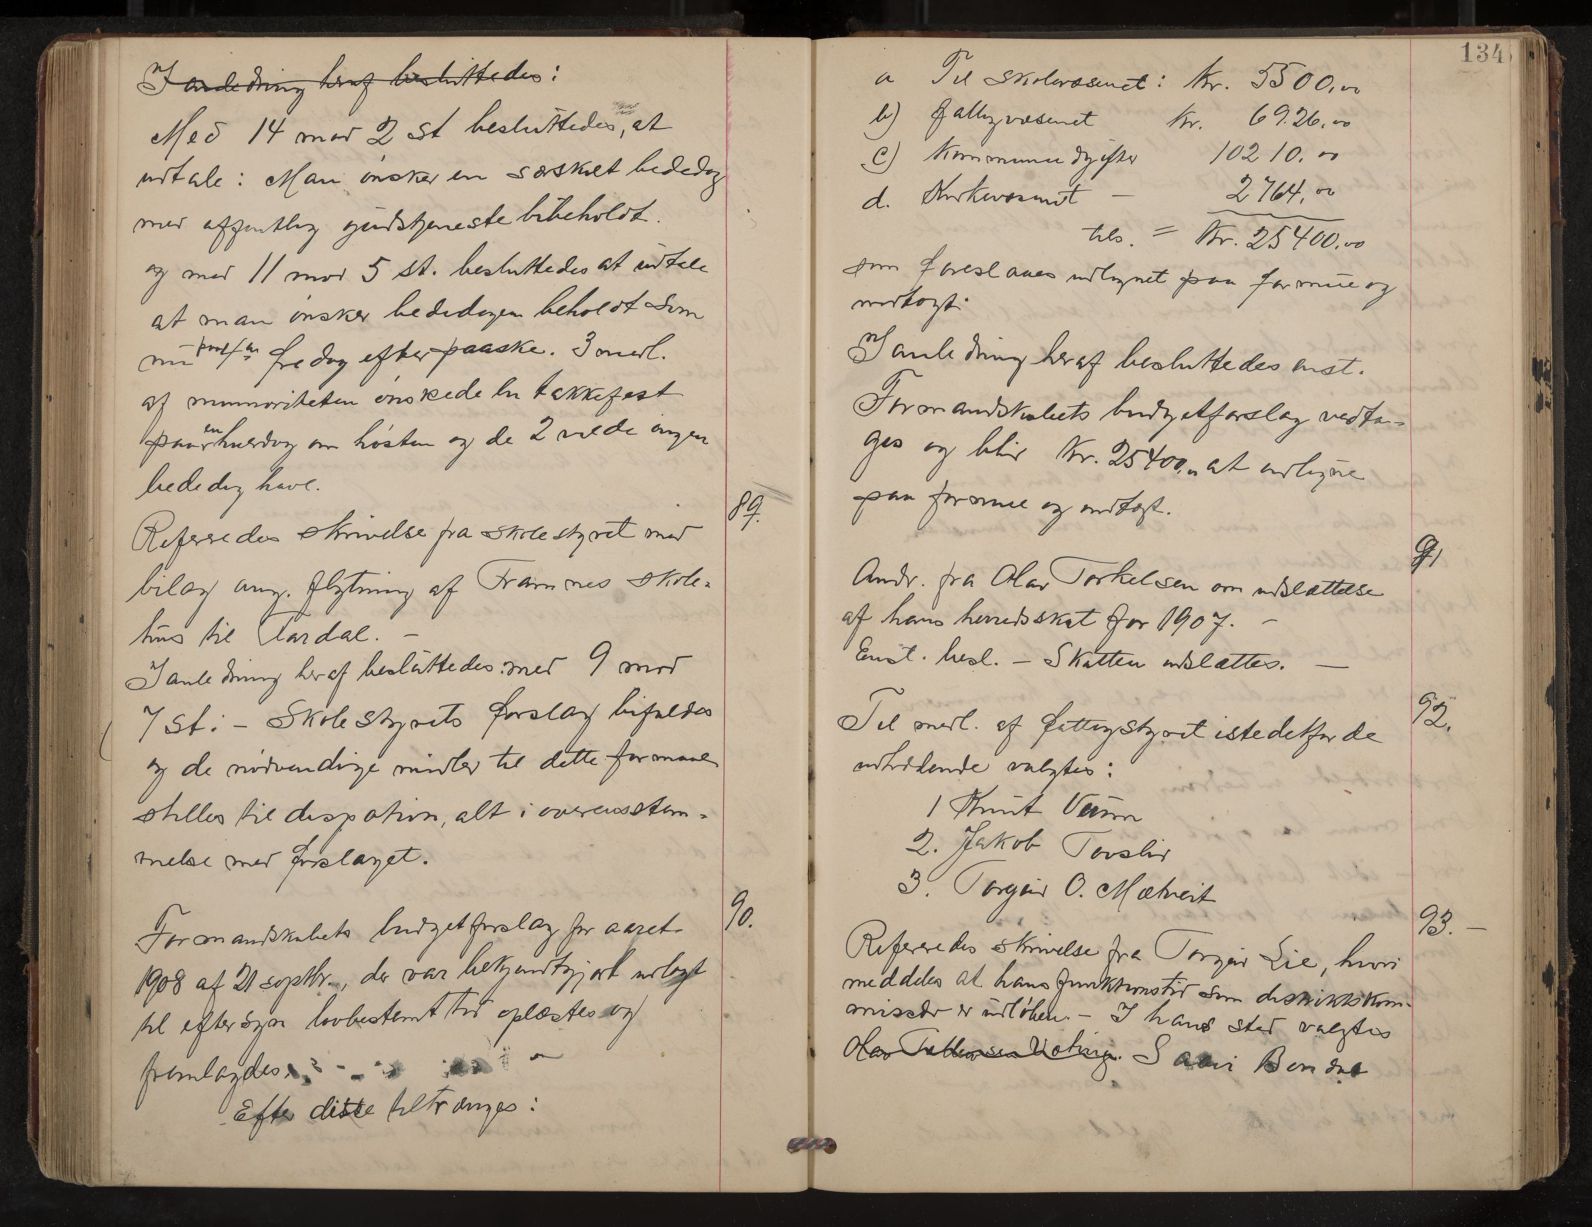 I anledning heraf besluttedes:
Med 14 mod 2 st besluttedes, at
udtale: Man ønsker en særskilt bededag
med offentlig gudstjeneste bibeholdt.
og med 11 mod 5 st. besluttedes at udtale
at man ønsker bededagen beholdt som
nu fredag efter paaske. 3 medl.
af minnoriteten ønskede en takkefest
paa en hverdag om høsten og de 2 vilde ingen
bededag have.
89.
Referredes skrivelse fra skolestyret med
bilag ang. flytning af Framnes skole-
hus til Tardal. -
I anledning heraf besluttedes med 9 mod
7 st: - Skolestyrets forslag bifaldes
og de nødvendige midler til dette formaal
stilles til dispotion, alt i overensstem-
melse med forslaget.
90.
Formandskabets budgetforslag for aaret
1908 af 21 septbr., der var bekjendtgjort udlagt
til eftersyn lovbestemt tid oplæstes og
fremlagdes.
Efter dette tiltrænges:
134
a Til skolevæsenet: Kr. 5500,00
b) fattigvæsenet Kr. 6926,00
c) Kommuneudgifter 10210,00
d. Kirkevæsenet - 2764,00
tils. = Kr. 25400,00
som foreslaaes udlignet paa formue og
indtægt.
I anledning heraf besluttedes enst.
Formandskabets budgetforslag vedta-
ges og blir Kr. 25400,00 at udligne
paa formue og indtægt.
91
Andr. fra Olav Torkelsen om udslættelse
af hans herredsskat for 1907. -
Enst. besl. - Skatten udslættes. -
92.
Til medl. af fattigstyret istedetfor de
udtrædende valgtes:
1 Knut
2. Jakob Tovslid
3. Torgeir O. Mætveit
93. -
Referredes skrivelse fra Torgeir Lie, hvori
meddeles at hans funktionstid som distriktskom-
missær er udløben. - I hans sted valgtes
Olav